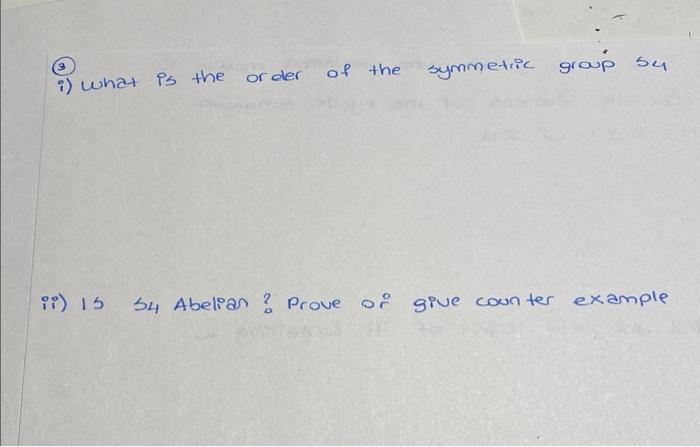 3
i) what is the order of the symmetric group S4
ii) Is S4 Abelian? Prove or give counter example